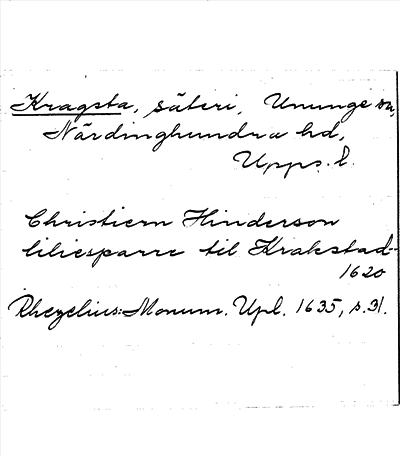 Kragsta, säteri, Ununge sn,
Närdinghundra hd,
Upps. l.
Christiern Hinderson
liliesparre til Krakstad-
1620
Rhezelius: Monum. Upl. 1635, s. 31.